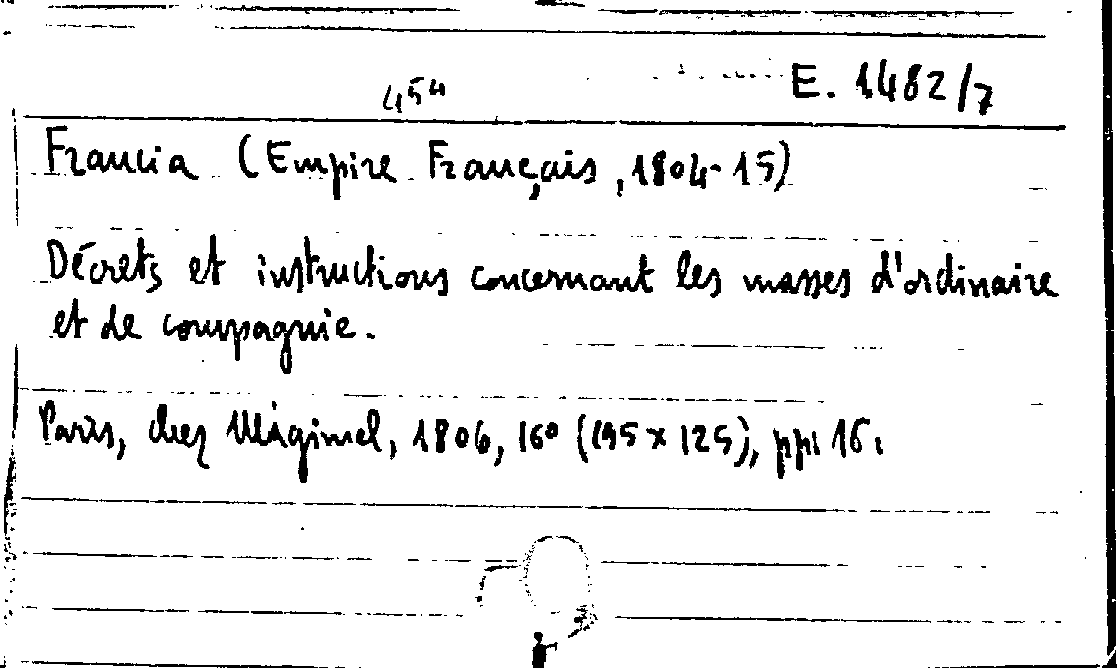 454
E. 1482/7
Francia (Empire Français, 1804-15)
Décrets et instructions concernant les masses d'ordinaire
et de compagnie.
Paris, chez Magimel, 1806, 16° (195 x 125), pp. 16.